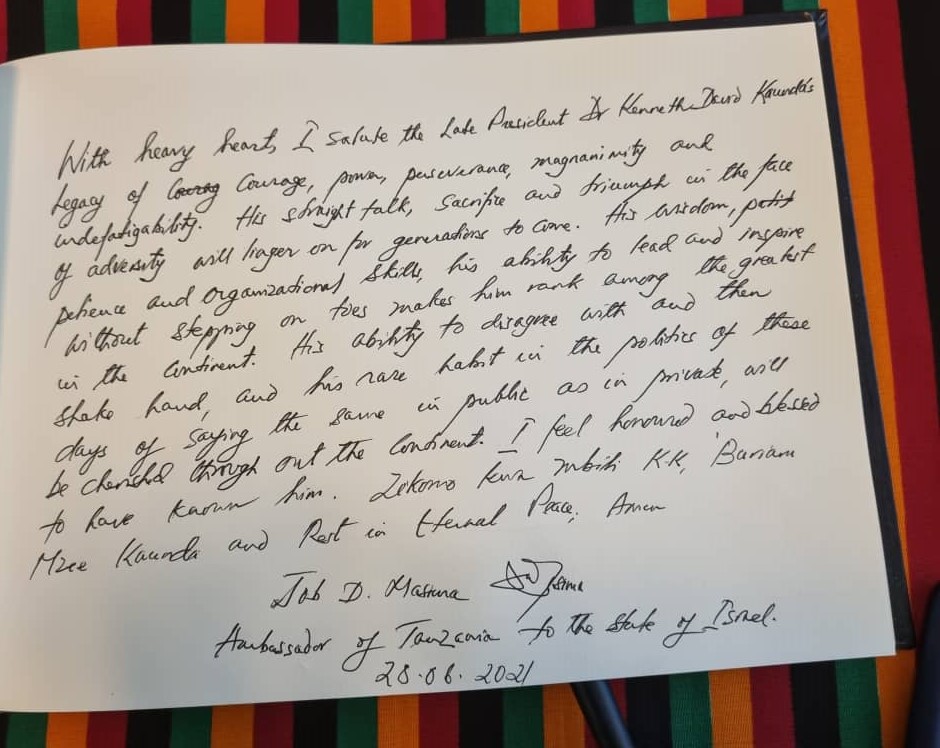 With heavy heart, I salute the Late President Dr Kenneth David Kaunda's
legacy of Courag Courage, power, perseverance, magnanimity and
undefatigability. His straight talk, sacrifice and triumph in the face
of adversity will linger on for generations to come. His wisdom, patit
patience and organizational skills, his ability to lead and inspire
without stepping on toes makes him rank among the greatest
in the continent. His ability to disagree with and then
shake hand, and his rare habit in the politics of these
days of saying the same in public as in private, will
be cherished through out the continent. I feel honoured and blessed
to have known him. Zikomo kwa mbiri K.K, Buriani
Mzee Kaunda and Rest in Eternal Peace, Amen
Job D. Masima
Ambassador of Tanzania to the State of Israel.
28.06.2021